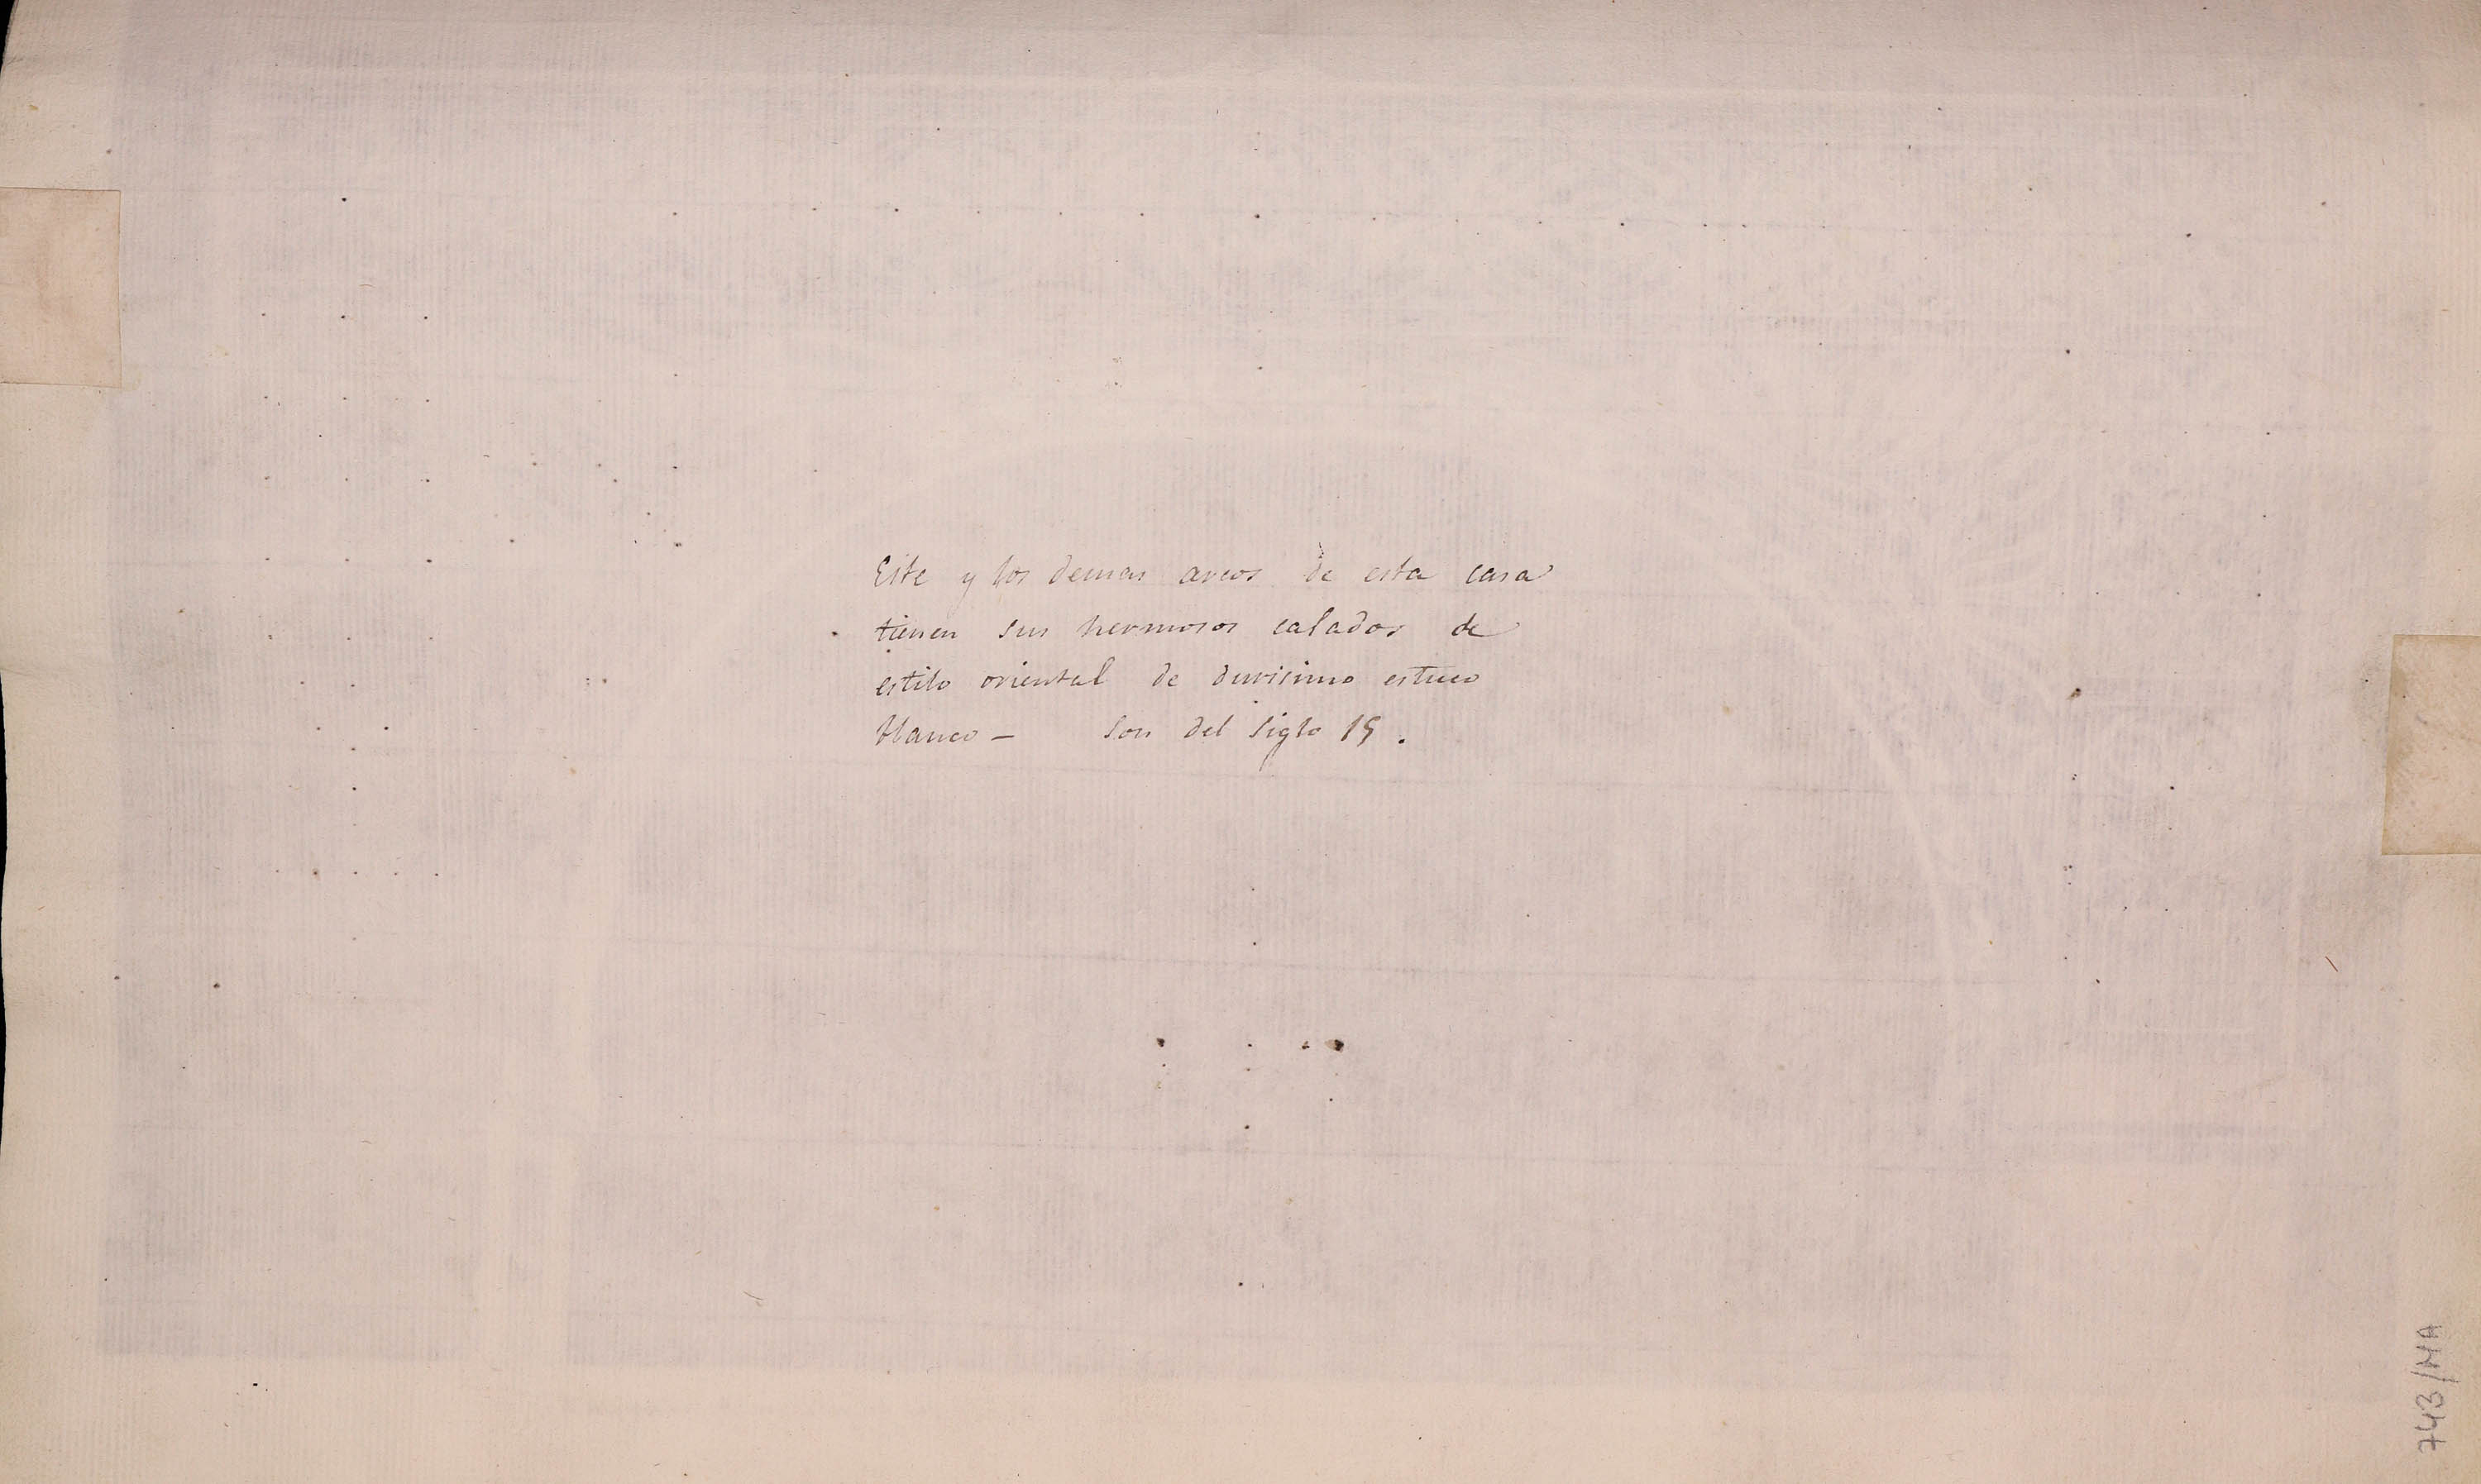 Este y los demas arcos de esta casa
tienen sus hermosos calados de
estilo oriental de durisimo estuco
blanco — Son del Siglo 15.
743/MA